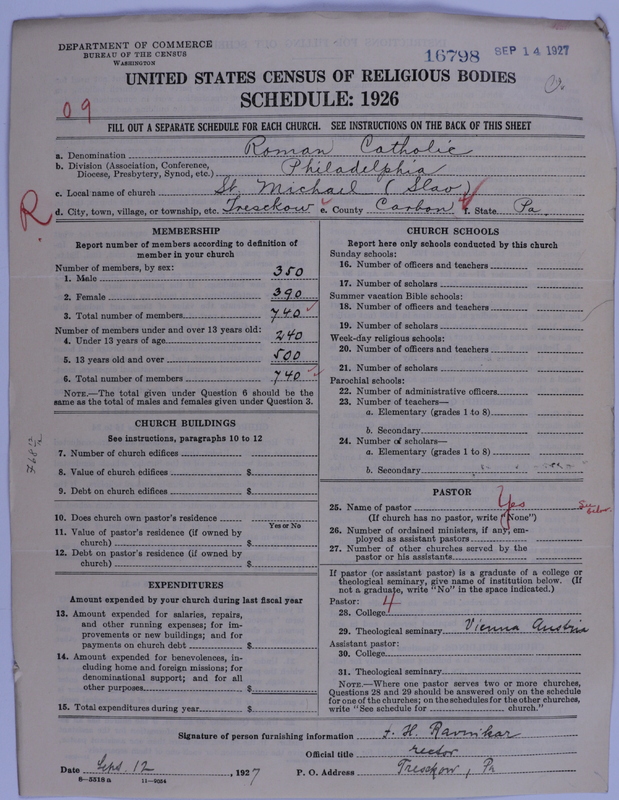 DEPARTMENT OF COMMERCE
BUREAU OF THE CENSUS
WASHINGTON
16798 SEP 14 1927
UNITED STATES CENSUS OF RELIGIOUS BODIES
SCHEDULE: 1926
09
FILL OUT A SEPARATE SCHEDULE FOR EACH CHURCH. SEE INSTRUCTIONS ON THE BACK OF THIS SHEET
a. Denomination Roman Catholic
b. Division (Association, Conference, Diocese, Presbytery, Synod, etc.) Philadelphia
c. Local name of church St. Michael (Slav)
R
d. City, town, village, or township, etc. Tresckow e. County Carbon f. State Pa
MEMBERSHIP
Report number of members according to definition of
member in your church
Number of members, by sex:
1. Male 350
2. Female 390
3. Total number of members 740
Number of members under and over 13 years old:
4. Under 13 years of age 240
5. 13 years old and over 500
6. Total number of members 740
NOTE.—The total given under Question 6 should be
same as the total of males and females given under Question 3.
CHURCH BUILDINGS
See instructions, paragraphs 10 to 12
7. Number of church edifices
8. Value of church edifices $
9. Debt on church edifices $
10. Does church own pastor's residence
Yes or No
11. Value of pastor's residence (if owned by
church) $
12. Debt on pastor's residence (if owned by
church) $
EXPENDITURES
Amount expended by your church during last fiscal year
13. Amount expended for salaries, repairs,
and other running expenses; for im-
provements or new buildings; and for
payments on church debt $
14. Amount expended for benevolences, in-
cluding home and foreign missions; for
denominational support; and for all
other purposes $
15. Total expenditures during year $
CHURCH SCHOOLS
Report here only schools conducted by this church
Sunday schools:
16. Number of officers and teachers
17. Number of scholars
Summer vacation Bible schools:
18. Number of officers and teachers
19. Number of scholars
Week-day religious schools:
20. Number of officers and teachers
21. Number of scholars
Parochial schools:
22. Number of administrative officers
23. Number of teachers—
a. Elementary (grades 1 to 8)
b. Secondary
24. Number of scholars—
a. Elementary (grades 1 to 8)
b. Secondary
PASTOR
25. Name of pastor Yes
(If church has no pastor, write "None")
26. Number of ordained ministers, if any, em-
ployed as assistant pastors
27. Number of other churches served by the
pastor or his assistants
If pastor (or assistant pastor) is a graduate of a college or
theological seminary, give name of institution below. (If
not a graduate, write "No" in the space indicated.)
Pastor: 4
28. College
29. Theological seminary Vienna Austria
Assistant pastor:
30. College
31. Theological seminary
NOTE.—Where one pastor serves two or more churches,
Questions 28 and 29 should be answered only on the schedule
for one of the churches; on the schedules for the other churches,
write "See schedule for church."
Signature of person furnishing information H. Ravnikar
Official title rector
Date Sept. 12, 1927 P. O. Address Tresckow, Pa
8—5518 a 11—9054